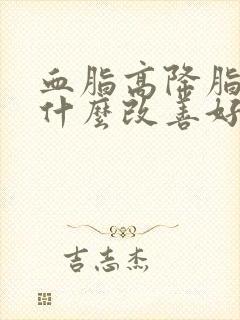 血脂高降脂
什麼改善好
吉志杰